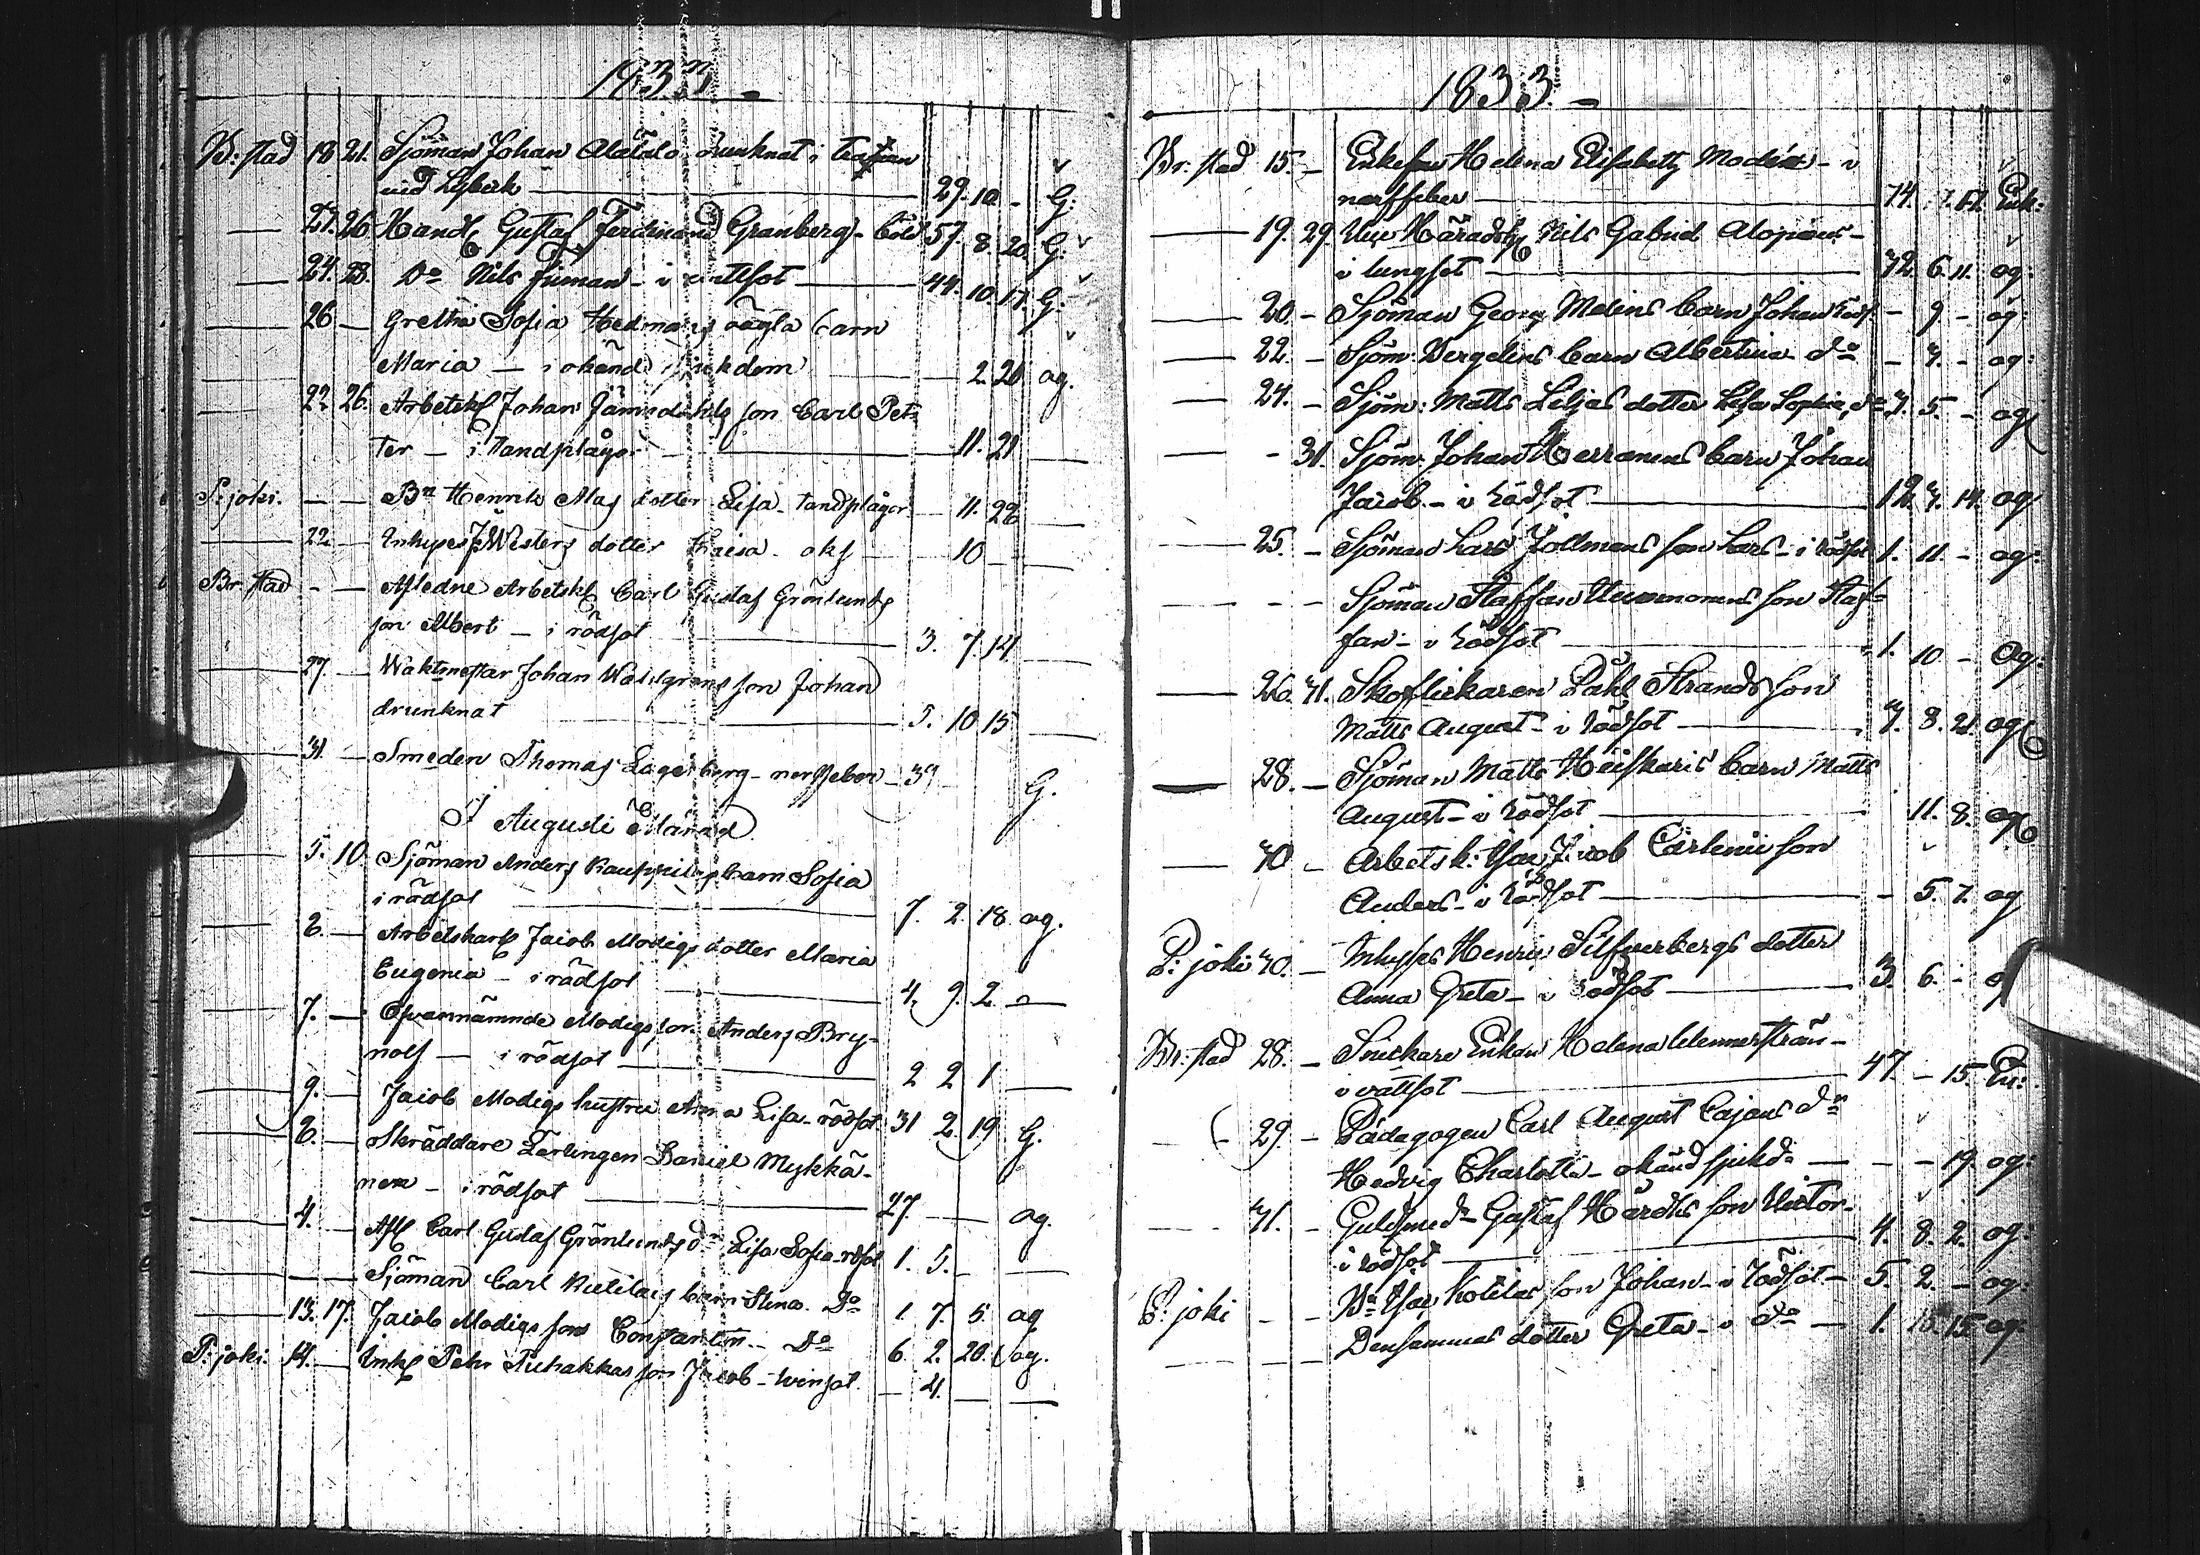 1833.
Br: stad 18 21. Sjöman Johan Alatalo drunknat i trafven
vid Lybeck 29. 10 - G.
21. 26 Handl Gustaf Ferdinand Granberg 57. 8. 20. G.
24. 28. Do Nils Finman - i vattsot 44. 10. 17. G:
26 - Gretha Sofia Hedmans oägta barn
Maria - i okänd sjukdom 2 20 og.
22 26. Arbetsk Johan son Carl Pet-
ter - i tandplågor 11. 21
P: joki. - - Bn Henrik Alas dotter Lisa - tandplågor 11. 28
22 - Inhyses dotter Kaisa - okf 10 -
Br. stad - - Afledne Arbetsk Carl Gustaf Grönlunds
son Albert - i rödsot 3. 7. 14
27. - Waktmestar Johan son Johan
drunknat 5. 10 15
31 - Smeden Thomas Lagerberg - nerffeber G.
I Augusti Månad
5. 10. Sjöman Anders barn Sofia
i rödsot 7. 2. 18 og.
6. - Arbetskarl Jacob Modigs dotter Maria
Eugenia - i rödsot 4. 9. 2.
7. - Ofvannämnde Modigs son Anders Bry-
nolf - i rödsot 2 2 1
9. - Jacob Modigs hustru Anna Lisa - rödsot 31 2 19 G.
6. - Skräddare Lärlingen Daniel Mykkä-
nen - i rödsot 27. og.
4. - Afl Carl Gustaf Grönlunds dr Lisa Sofia - rdsot 1. 5. -
- - Sjöman Carl barn Stina - Do 1. 7. 5 og
13. 17. Jacob Modigs son Constantin - Do 6. 2. 20. og.
P: joki. 14. - Inh Pehr Piehakkas son Jacob - 4.
1833.
Br. stad 15. - Enkefru Helena Elisabeth - i
nerffeber 74. Enk:
19. 29. Ux Häradsh Nils Gabriel Alopæus -
i lungsot 72. 6. 11. og:
20. - Sjöman Georg Melins barn Johan rods. - 9 - og:
22. - Sjöm: Bergelins barn Albertina do - 7. - og:
24. - Sjöm: Matts Liljas dotter Lisa Sophia, do 7. 5. - og
- 31. Sjöm: Johan Herranens barn Johan
Jacob - i rödsot 12. 7. 14. og
25. - Sjöman Lars Jollmans son Lars - i rödsot 1. 11. - og:
- - Sjöman Staffan son Staf-
fan - i rödsot 1. 10 - og:
26. 31. Skoflickaren Påhl Strands son
Matts August - i rödsot 7. 8. 21. og
28. - Sjöman Matts barn Matts
August - i rödsot 11. 8. og
30 - Arbetsk: Isac Jacob son
Anders - i rödsot - 5. 7. og
P: joki 30. - Inhyses Henric Silfverbergs dotter
Anna Greta - i rödsot 3. 6. -
Br: stad 28. - Snickare Enkan Helena -
i vattsot 47. - 15. En:
29. - Pædagogen Carl August Cajans dr
Hedvig Charlotta - okänd sjukd: - - 19. og:
31. - Guldsmed Gustaf son Victor -
i rödsot 4. 8. 2. og:
P: joki - - Bn Isac Kotilas son Johan - i rödsot - 5. 2. - og:
- - Densammas dotter Greta - i do - 1. 15. og: